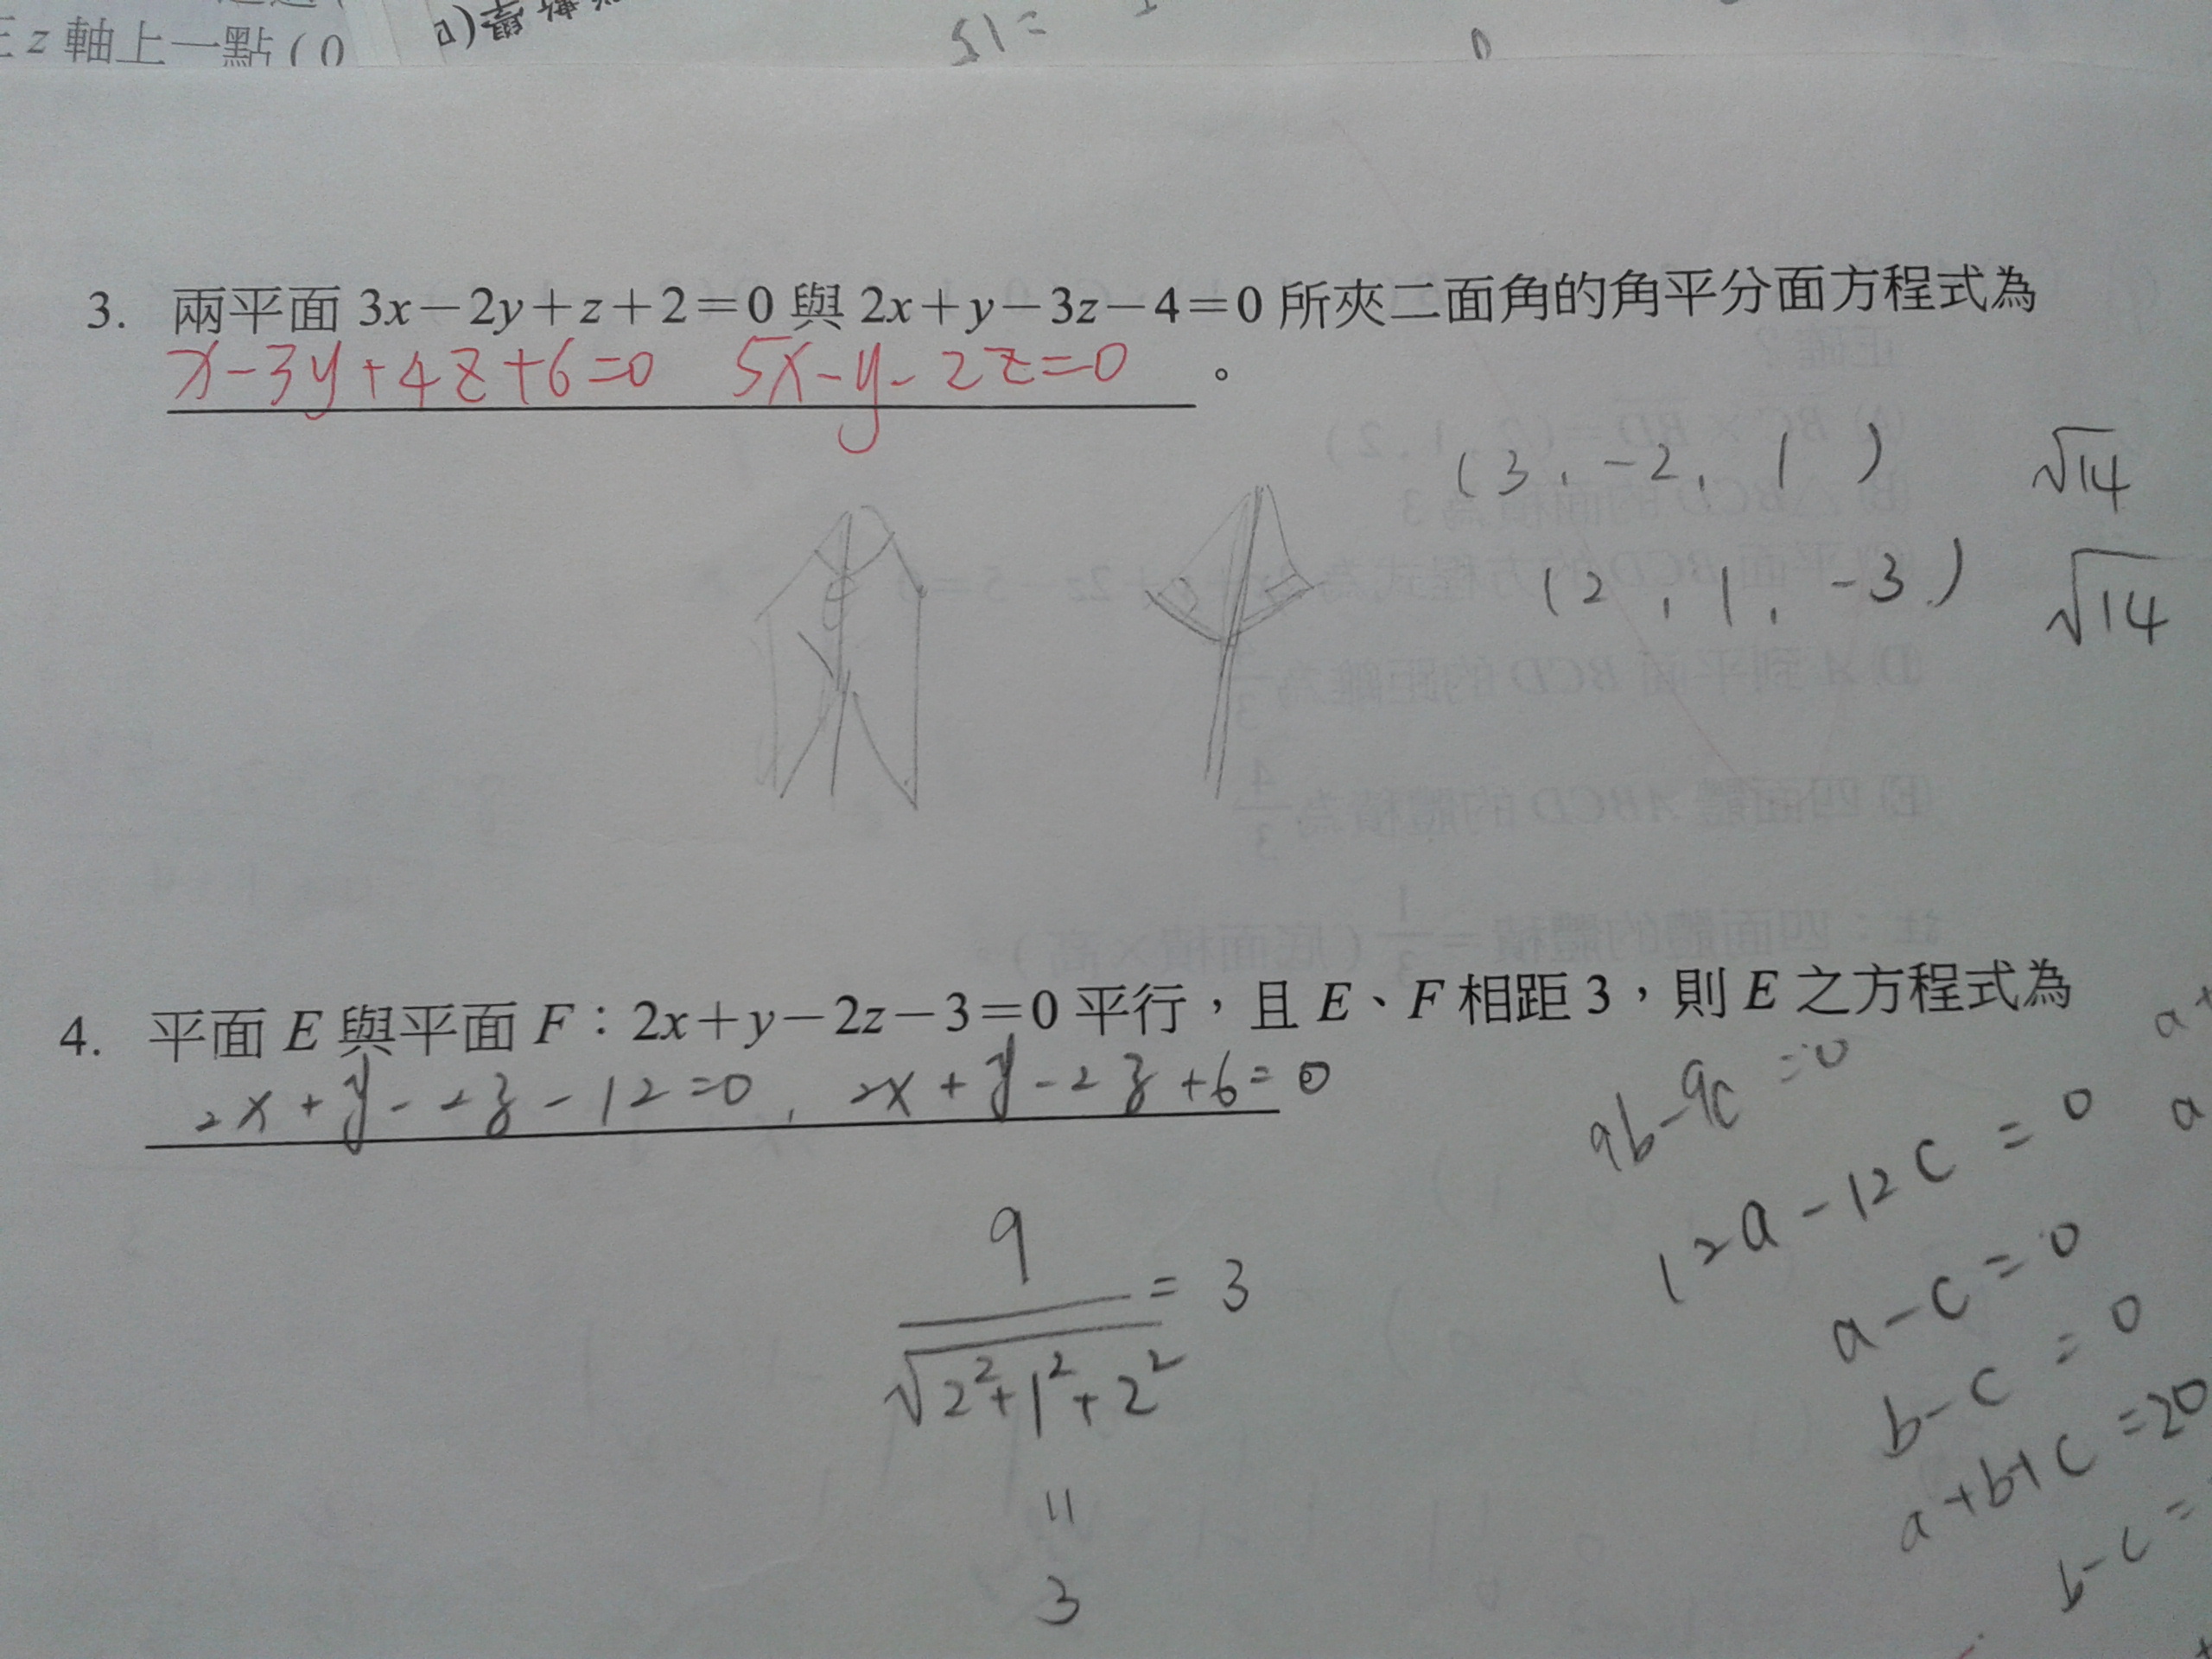 z 軸上一點 ( 0
a)
3. 兩平面 3x－2y＋z＋2＝0 與 2x＋y－3z－4＝0 所夾二面角的角平分面方程式為
x-3y+4z+6=0 5x-y-2z=0 。
(3, -2, 1) √14
(2, 1, -3) √14
4. 平面 E 與平面 F：2x＋y－2z－3＝0 平行，且 E、F 相距 3，則 E 之方程式為
2x+y-2z-12=0, 2x+y-2z+6=0
9/√2²+1²+2² = 3
=
3
9b-9c=0
12a-12c=0
a-c=0
b-c=0
a+b+c=20
b-c=